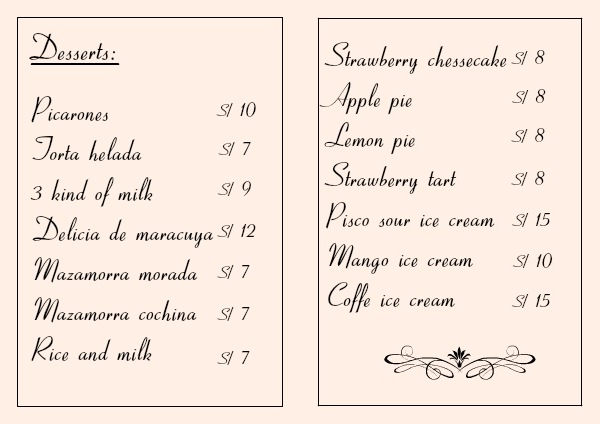 Desserts:
Picarones S/ 10
Torta helada S/ 7
3 kind of milk S/ 9
Delicia de maracuya S/ 12
Mazamorra morada S/ 7
Mazamorra cochina S/ 7
Rice and milk S/ 7
Strawberry chessecake S/ 8
Apple pie S/ 8
Lemon pie S/ 8
Strawberry tart S/ 8
Pisco sour ice cream S/ 15
Mango ice cream S/ 10
Coffe ice cream S/ 15